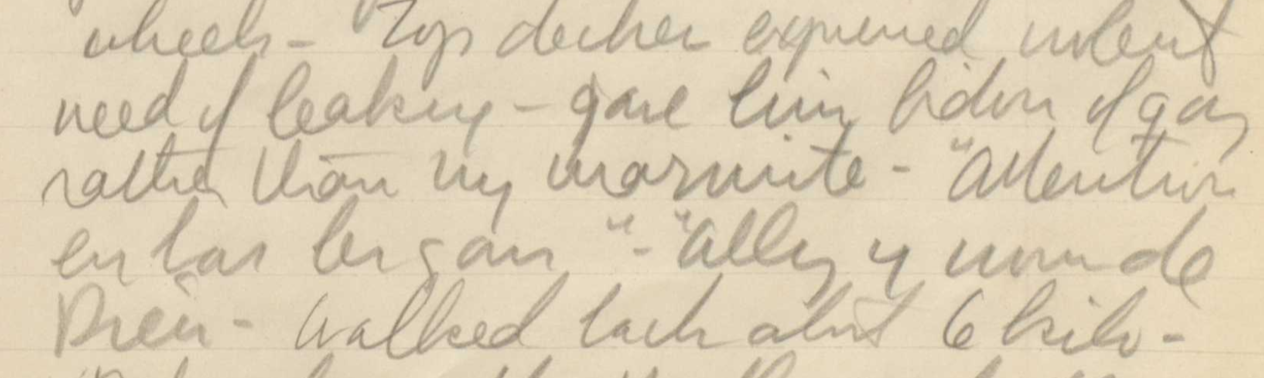 wheels - Top decker expressed violent
need of leaking - gave him bidon of gas
rather than my marmite - "Attention
en bas les gars" - "Allez y nom de
Dieu - Walked back about 6 kilo -